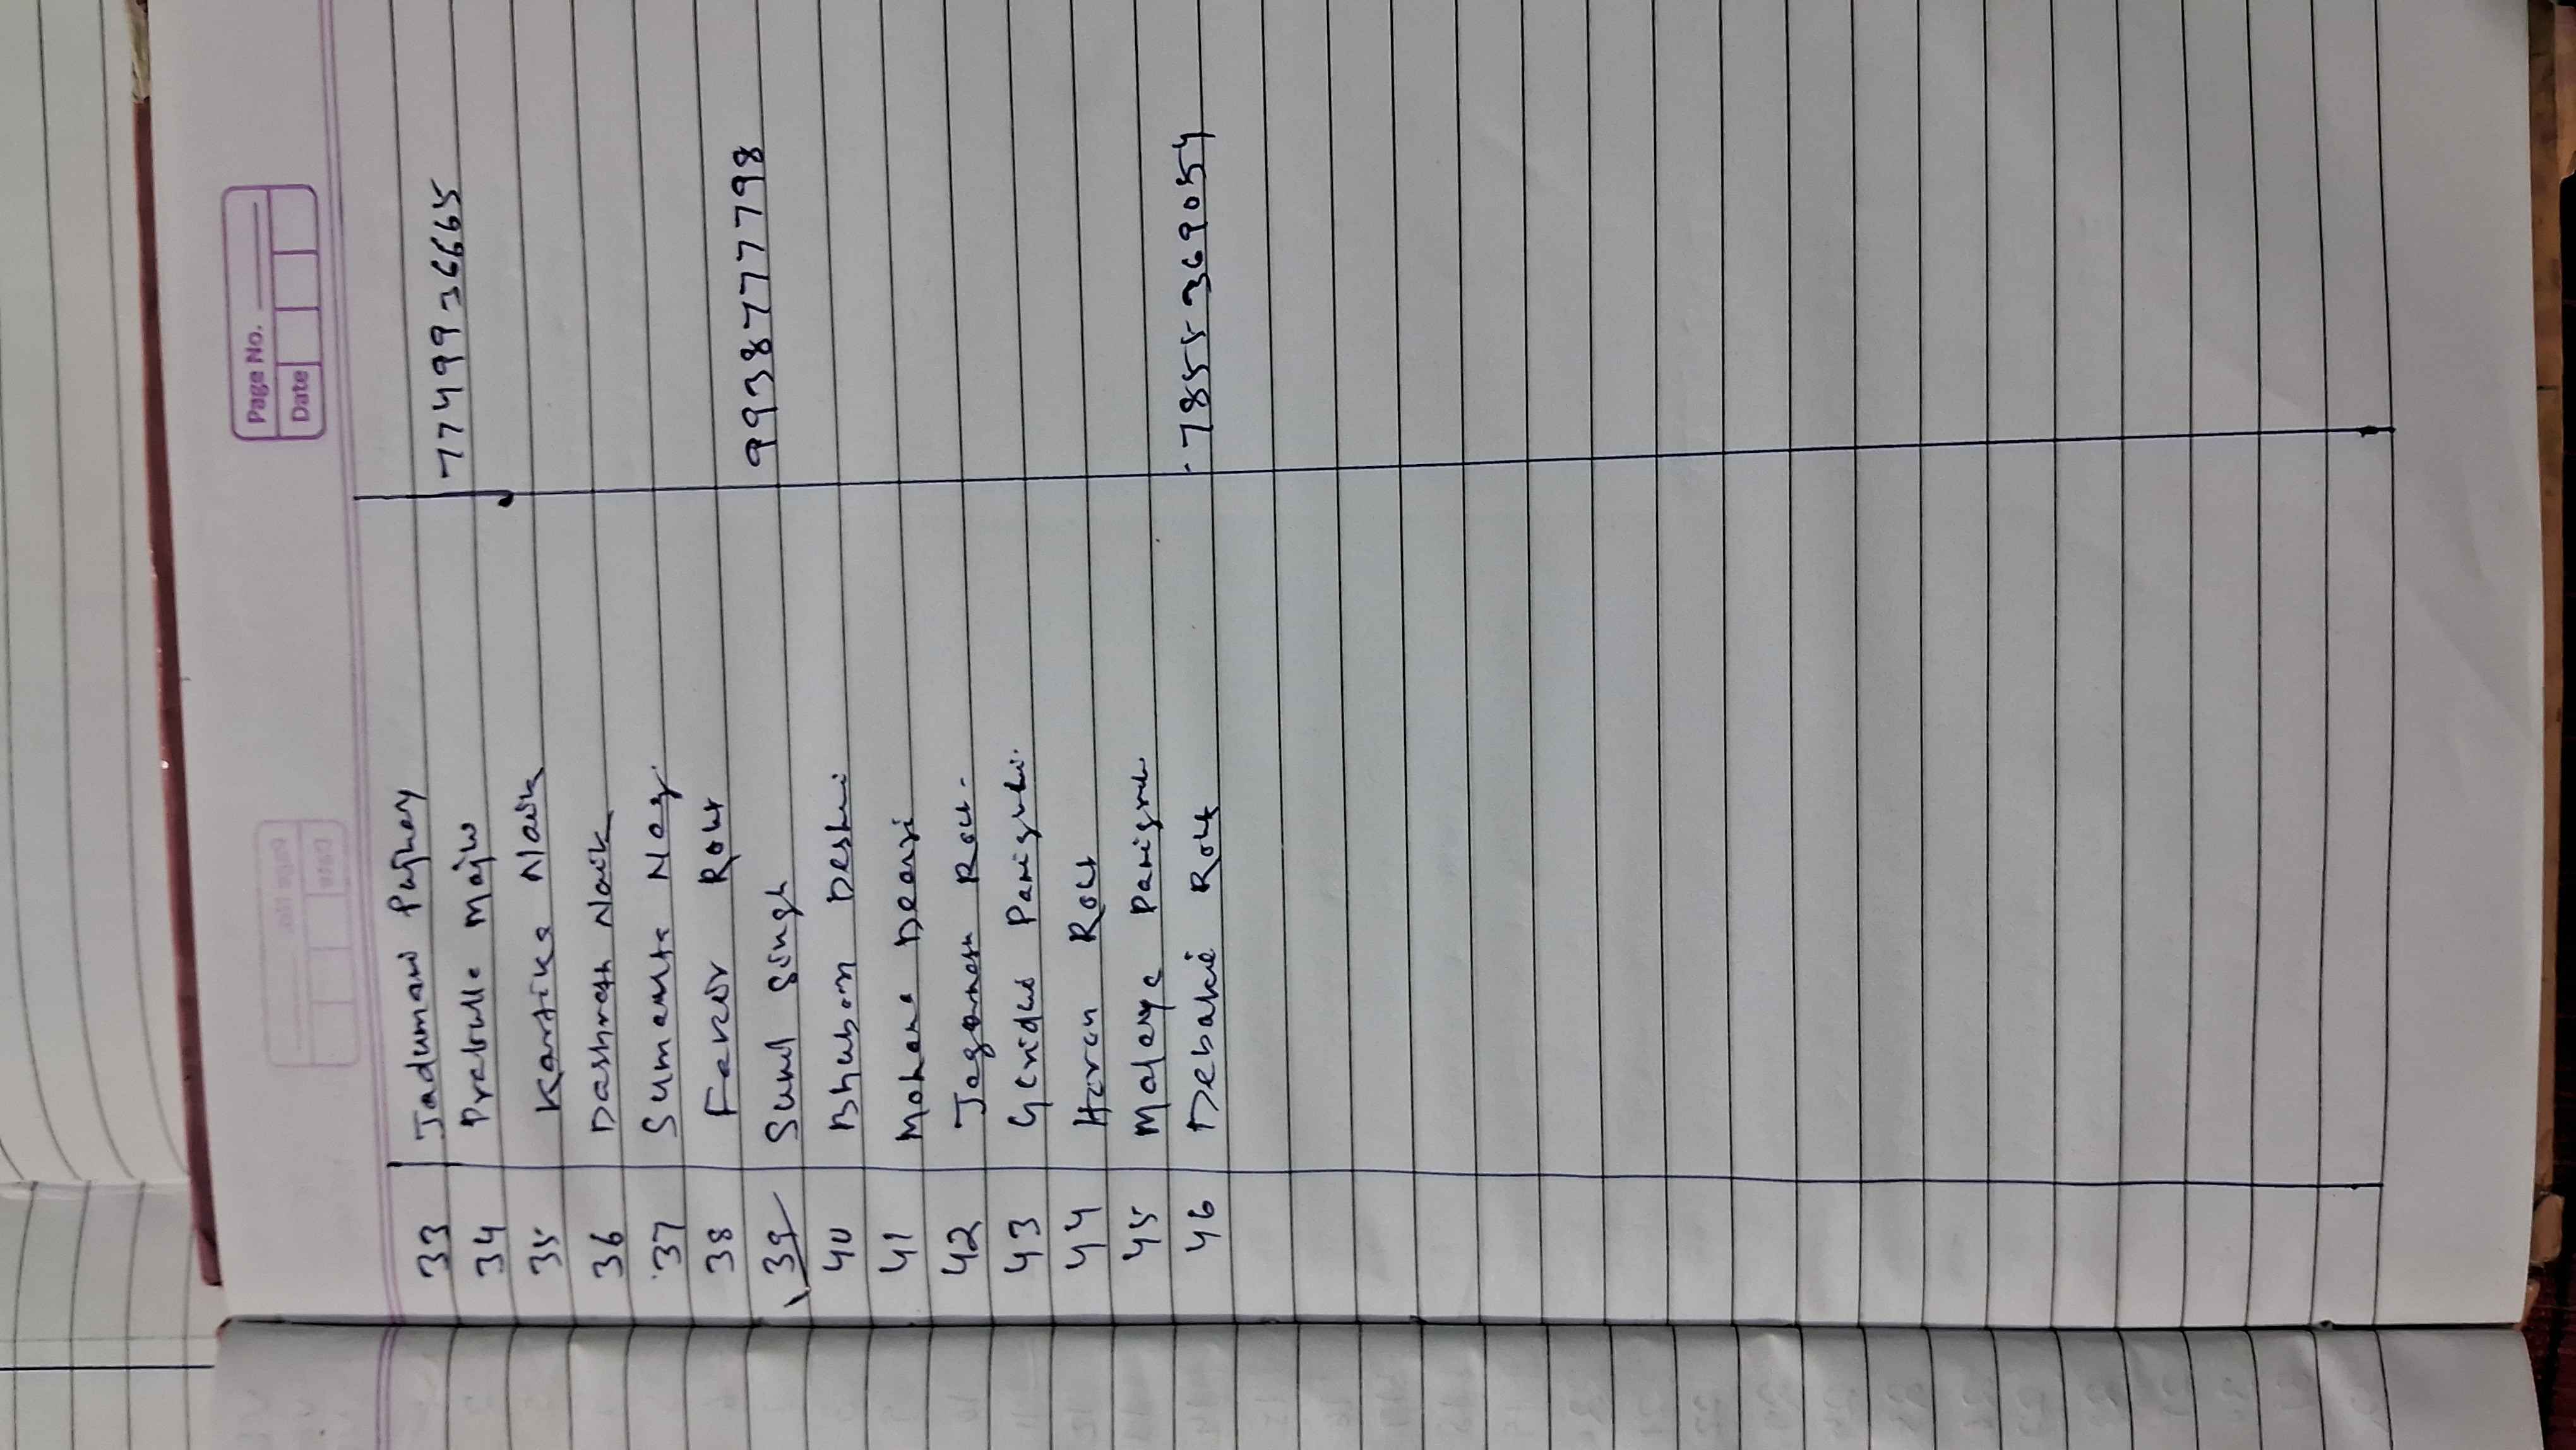 Page No.
Date
33 Jadumani Pujhary
34 Prabulla Majhi 7749936665
35 Kartika Naik
36 Dashrath Naik
37 Sumanta Nag
38 Rout
39 Sunil Singh 9938777798
40 Bhubon Deshri
41 Mohana Deari
42 Jagannath Rout.
43 Panigrahi.
44 Haran Rout
45 Malaya Panigrahi
46 Debaki Rout 7855369054